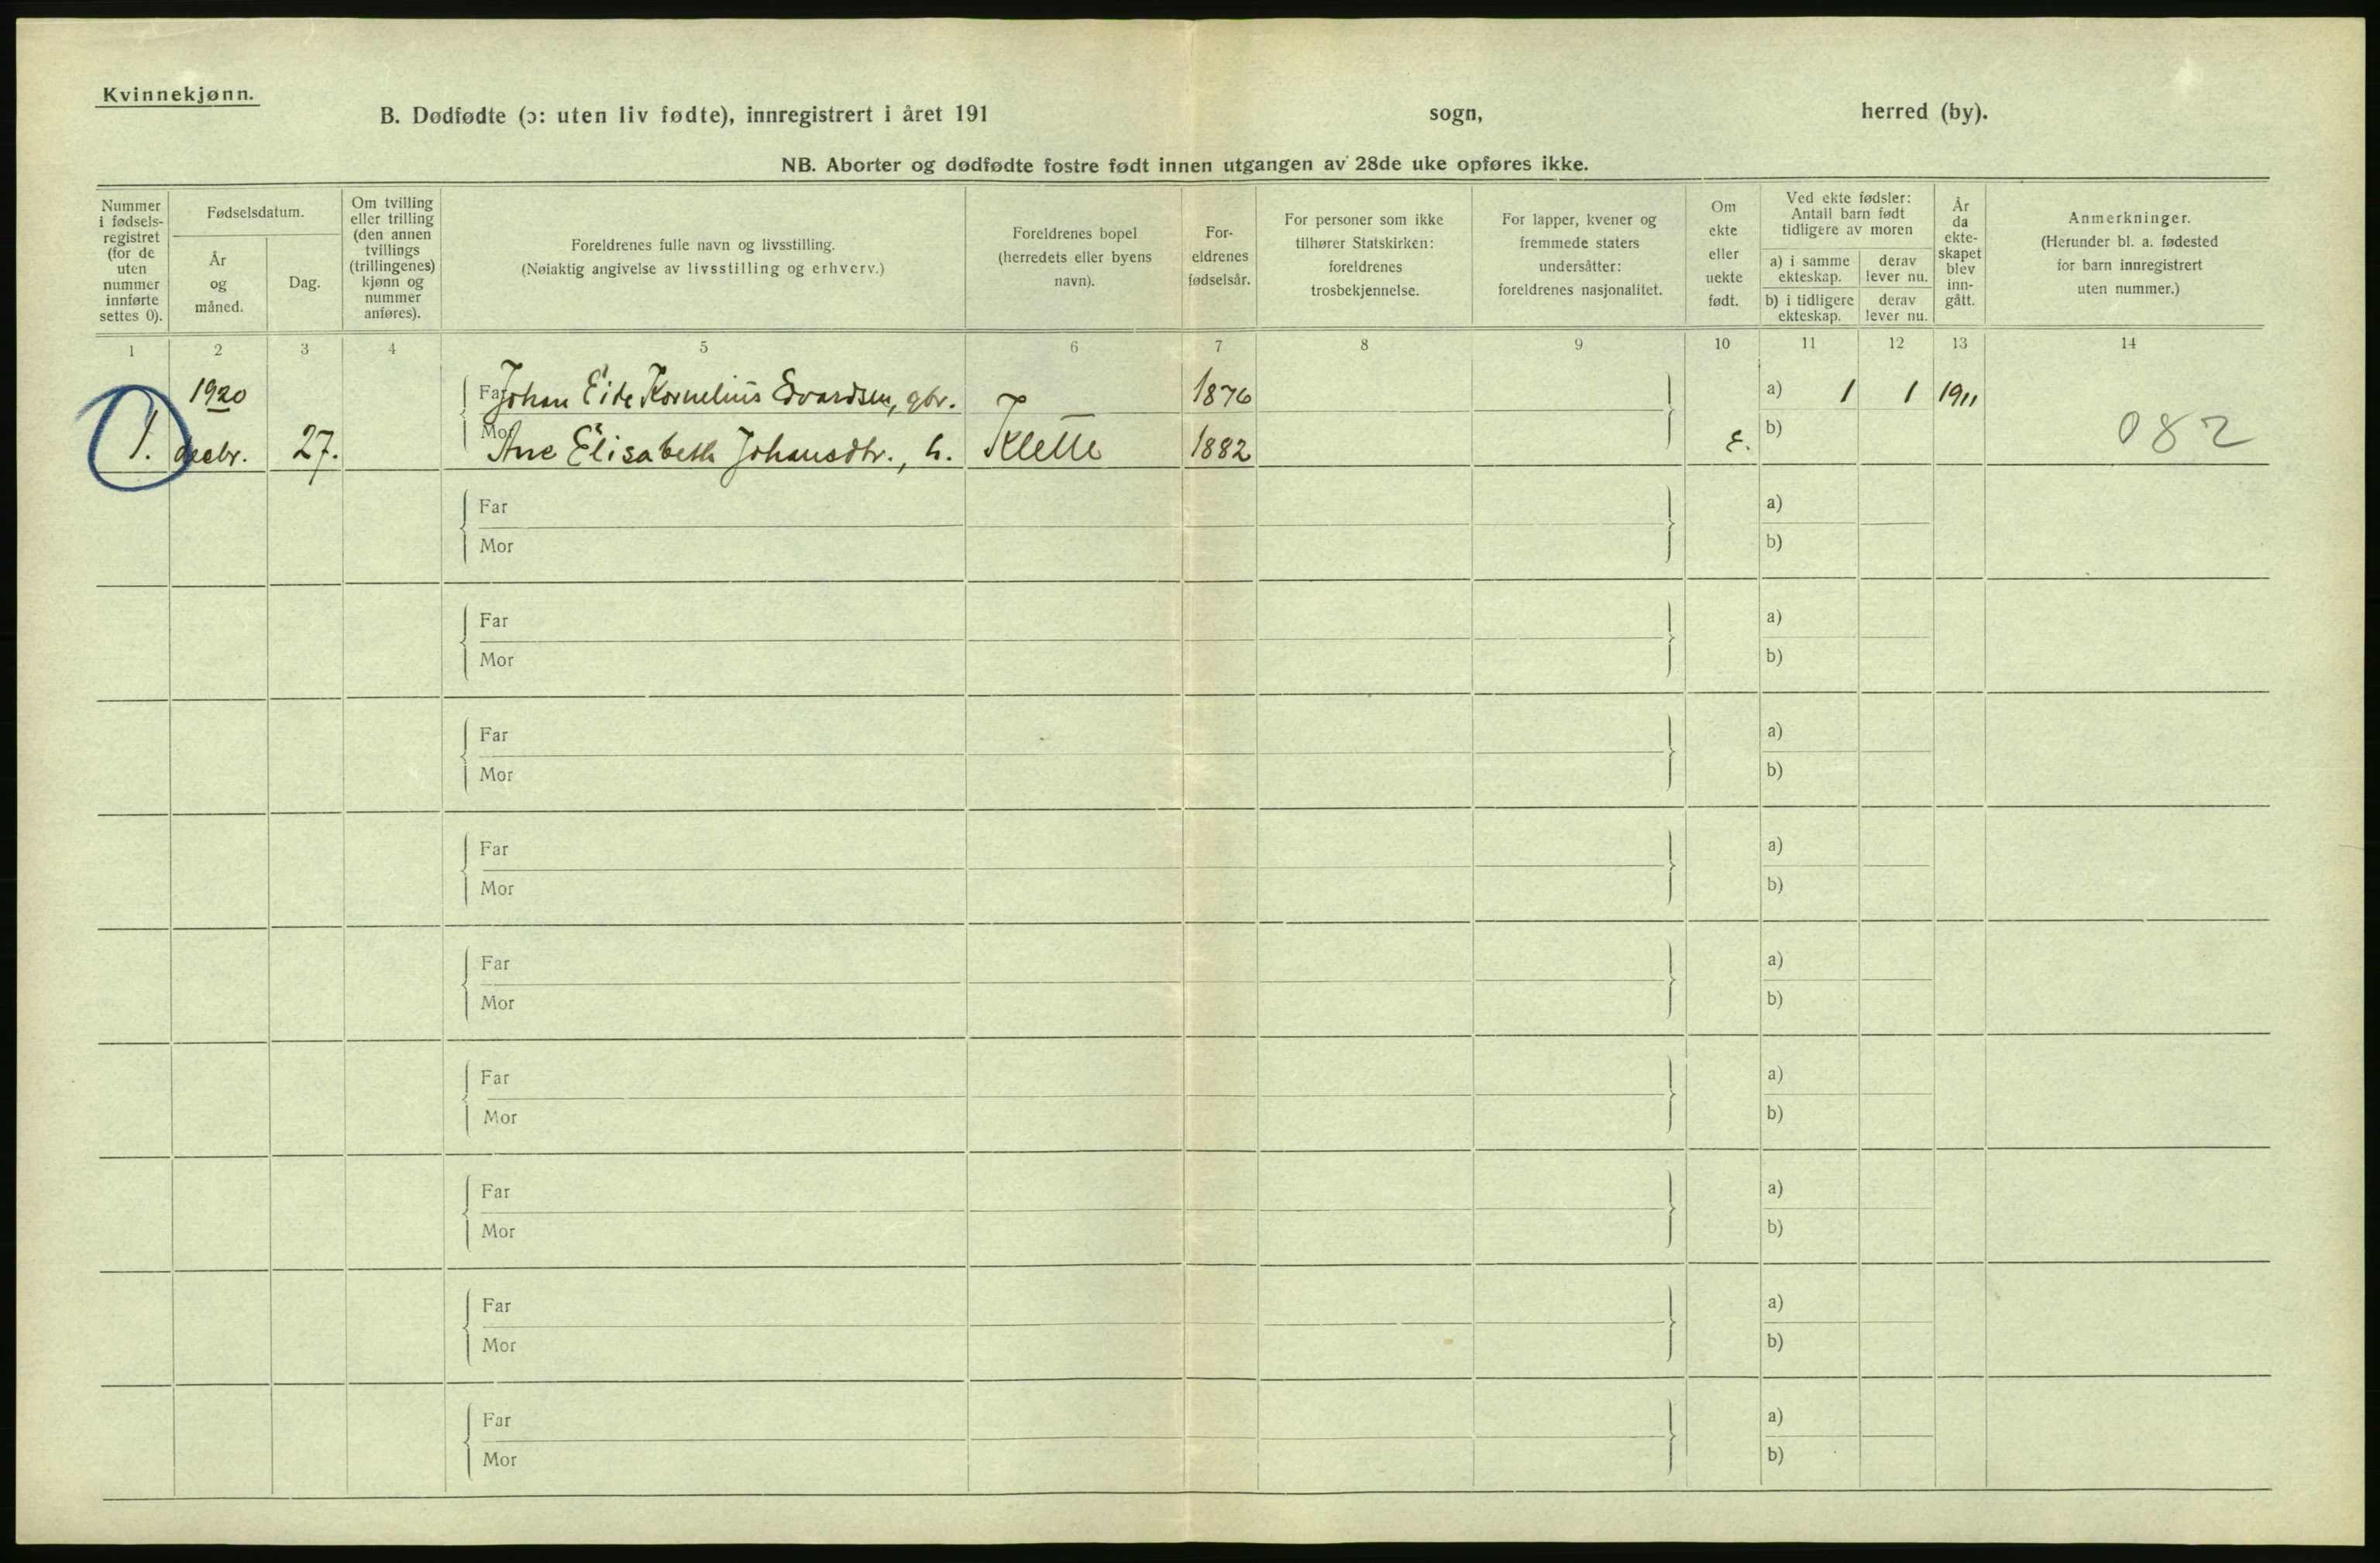 Kvinnekjønn.
B. Dødfødte (ɔ: uten liv fødte), innregistrert i året 191 sogn, herred (by).
NB. Aborter og dødfødte fostre født innen utgangen av 28de uke opføres ikke.
Nummer
i fødsels-
registret
(for de
uten
nummer
innførte
settes 0).
Fødselsdatum.
År
og
måned.
Dag.
Om tvilling
eller trilling
(den annen
tvillings
(trillingenes)
kjønn og
nummer
anføres).
Foreldrenes fulle navn og livsstilling.
(Nøiaktig angivelse av livsstilling og erhverv.)
Foreldrenes bopel
(herredets eller byens
navn).
For-
eldrenes
fødselsår.
For personer som ikke
tilhører Statskirken:
foreldrenes
trosbekjennelse.
For lapper, kvener og
fremmede staters
undersåtter:
foreldrenes nasjonalitet.
Om
ekte
eller
uekte
født.
Ved ekte fødsler:
Antall barn født
tidligere av moren
a) i samme
ekteskap.
derav
lever nu.
b) i tidligere
ekteskap.
derav
lever nu.
År
da
ekte-
skapet
blev
inn-
gått.
Anmerkninger.
(Herunder bl. a. fødested
for barn innregistrert
uten nummer.)
1 2 3 4 5 6 7 8 9 10 11 12 13 14
1920 Far Johan Eide Kornelius Edvardsen, gbr. 1876 a) 1 1 1911
1. decbr. 27. Mor Ane Elisabeth Johansdtr., h. Klette 1882 e. b) 082
Far a)
Mor b)
Far a)
Mor b)
Far a)
Mor b)
Far a)
Mor b)
Far a)
Mor b)
Far a)
Mor b)
Far a)
Mor b)
Far a)
Mor b)
Far a)
Mor b)